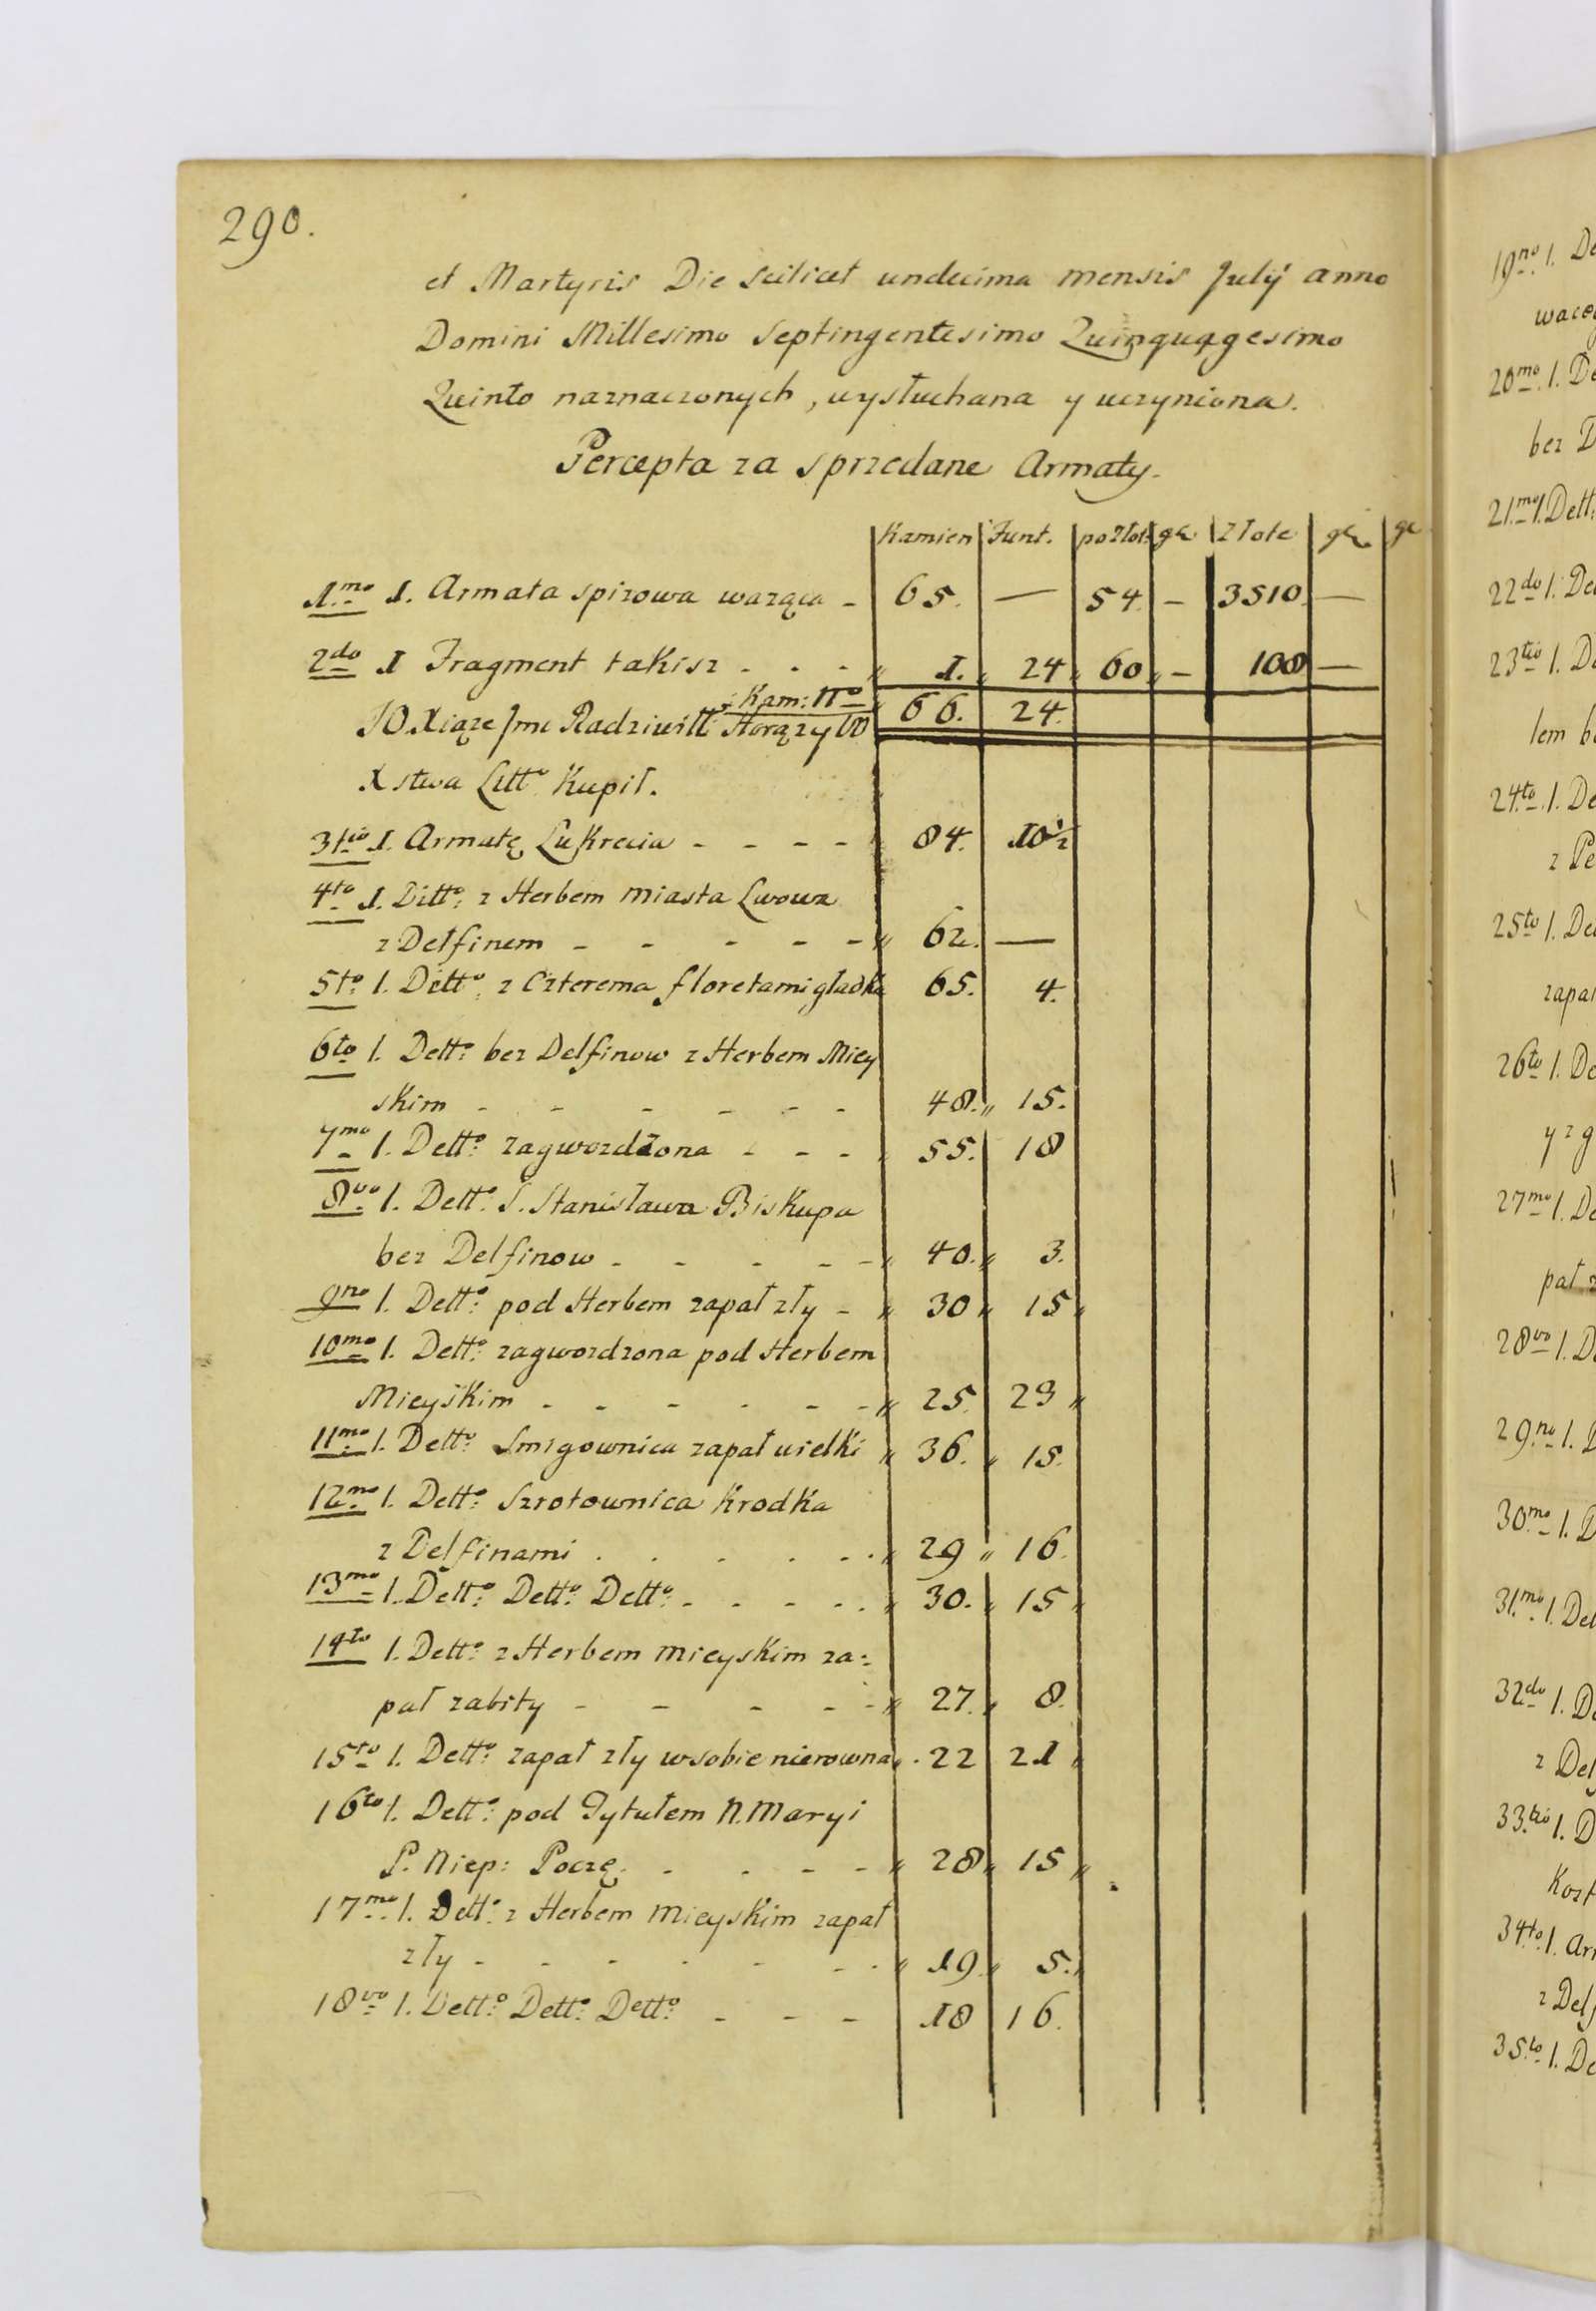 290.
et Martyris Die scilicet undecima mensis Julÿ anno
Domini Millesimo Septingentesimo Quinquagesimo
Quinto naznaczonych, wysłuchana y uczyniona.
Percepta za sprzedane Armaty.
Kamien Funt. po Złot. gr Złote gr
1mo 1. Armata spizowa warząca - 65. — 54 - 3510. —
2do 1 Fragment takisz - - - 1. 24 60 - 100 —
Kam: No 66. 24.
JO Xiąze Jmć Radziwiłł Horązy W
X stwa Litto Kupił.
3tio 1. Armatę Lukrecia - - - - 84. 10½
4to 1. Ditto: z Herbem miasta Lwowa
z Delfinem - - - - - 62. —
5to 1. Ditto: z Czterema floretami gładka 65. 4.
6to 1. Detto: bez Delfinow z Herbem Miey
skim - - - - - - 48. 15.
7mo 1. Detto: zagwozdzona - - - 55. 18
8vo 1. Detto: S. Stanisława Biskupa
bez Delfinow - - - - - 40. 3.
9no 1. Detto: pod Herbem zapał zły - 30 15
10mo 1. Detto: zagwozdzona pod Herbem
Mieyskim - - - - - - 25. 23
11mo 1. Detto: Smigownica zapał wielki 36. 15.
12mo 1. Detto: Szrotownica Krodka
z Delfinami . . . . . . 29 16.
13mo 1. Detto: Detto: Detto: - - - - . 30. 15
14to 1. Detto: z Herbem mieyskim za:
pał zabity - - - - - 27. 8.
15to 1. Detto: zapał zły wsobie nierowna 22 21
16to 1. Detto: pod Tytułem N. Maryi
P. Niep: Poczę. - - - - 28 15
17mo 1. Detto: z Herbem mieyskim zapał
zły - - - - - - - 19. 5.
18vo 1. Detto: Detto: Detto: - - - 18 16.
19no 1.
20mo. 1.
bez
21mo 1. Dett:
22do 1.
23tio 1.
24to. 1.
z
25to 1.
26to 1.
y z
27mo 1.
28vo 1.
29no 1.
30mo 1.
31mo 1.
32do 1.
z
33tio 1.
34to. 1.
z
35to 1.